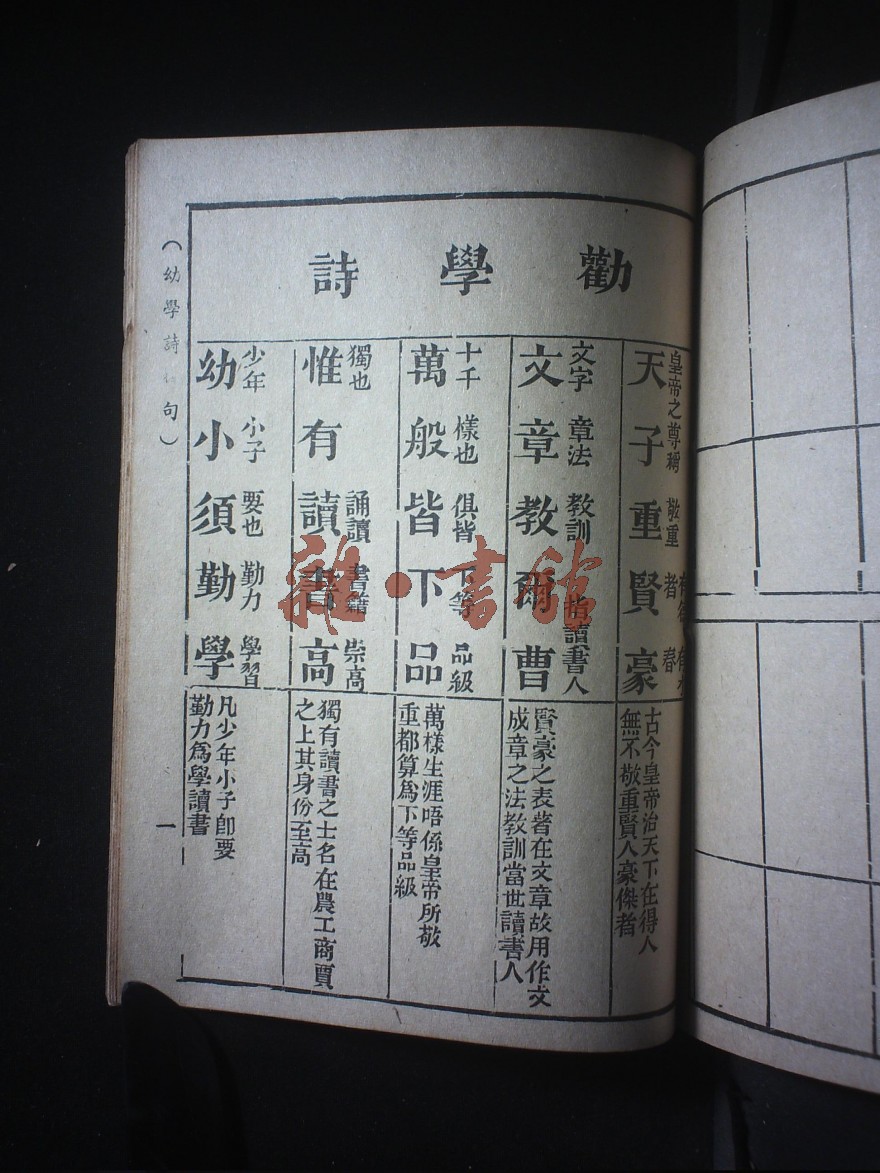 勸學詩
天子重賢豪
皇帝之尊稱 敬重
者
古今皇帝治天下在得人
無不敬重賢人豪傑者
文章教爾曹
文字 章法 教訓 指讀書人
賢豪之表著在文章故用作文
成章之法教訓當世讀書人
萬般皆下品
十千 樣也 俱皆 下等 品級
萬樣生涯唔係皇帝所敬
重都算爲下等品級
惟有讀書高
獨也 誦讀 書籍 崇高
獨有讀書之士名在農工商賈
之上其身份至高
幼小須勤學
少年 小子 要也 勤力 學習
凡少年小子卽要
勤力爲學讀書
（幼學詩 句）
一
雜·書館